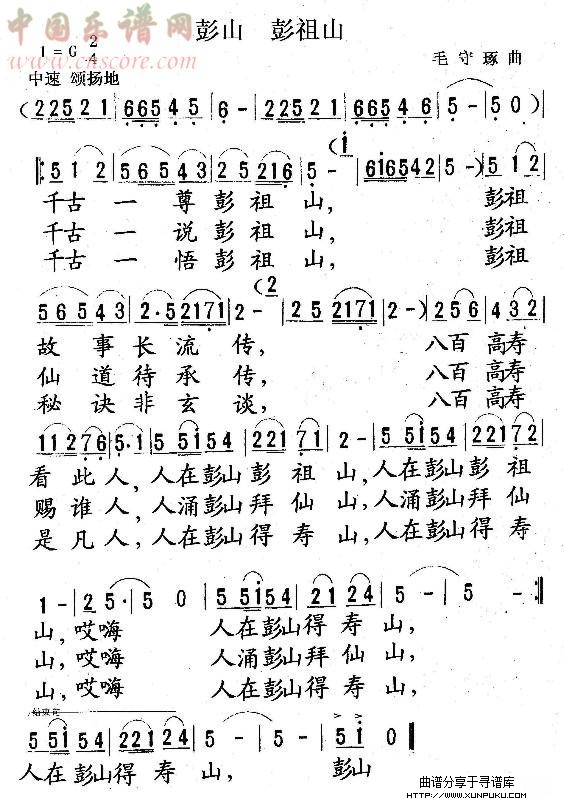 中国乐谱网
www.cnscore.com
彭山 彭祖山
1=G 2/4
毛守琢 曲
中速 颂扬地
(2 2 5 2 1 | 6 6 5 4 5 | 6 - | 2 2 5 2 1 | 6 6 5 4 6 | 5 - | 5 0 )
(i
5 1 2 | 5 6 5 4 3 | 2 5 2 1 6 | 5 - | 6 i 6 5 4 2 | 5 - ) | 5 1 2
千古 一 尊 彭 祖 山, 彭祖
千古 一 说 彭 祖 山, 彭祖
千古 一 悟 彭 祖 山, 彭祖
(2
5 6 5 4 3 | 2 · 5 2 1 7 1 | 2 - | 2 5 2 1 7 1 | 2 - ) | 2 5 6 | 4 3 2
故 事 长 流 传, 八百 高寿
仙 道 待 承 传, 八百 高寿
秘 诀 非 玄 谈, 八百 高寿
1 1 2 7 6 | 5 · 1 | 5 5 i 5 4 | 2 2 1 7 1 | 2 - | 5 5 i 5 4 | 2 2 1 7 2
看 此 人, 人在彭山 彭 祖 山, 人在彭山 彭 祖
赐 谁 人, 人涌彭山 拜 仙 山, 人涌彭山 拜 仙
是 凡 人, 人在彭山 得 寿 山, 人在彭山 得 寿
1 - | 2 5 · | 5 0 | 5 5 i 5 4 | 2 1 2 4 | 5 - | 5 - :||
山, 哎嗨 人在彭山得 寿 山,
山, 哎嗨 人涌彭山拜 仙 山,
山, 哎嗨 人在彭山得 寿 山,
结束句
5 5 i 5 4 | 2 2 2 1 2 4 | 5 - | 5 - | 5 i 0 ||
人在彭山得 寿 山, 彭山
曲谱分享于寻谱库
HTTP://WWW.XUNPUKU.COM